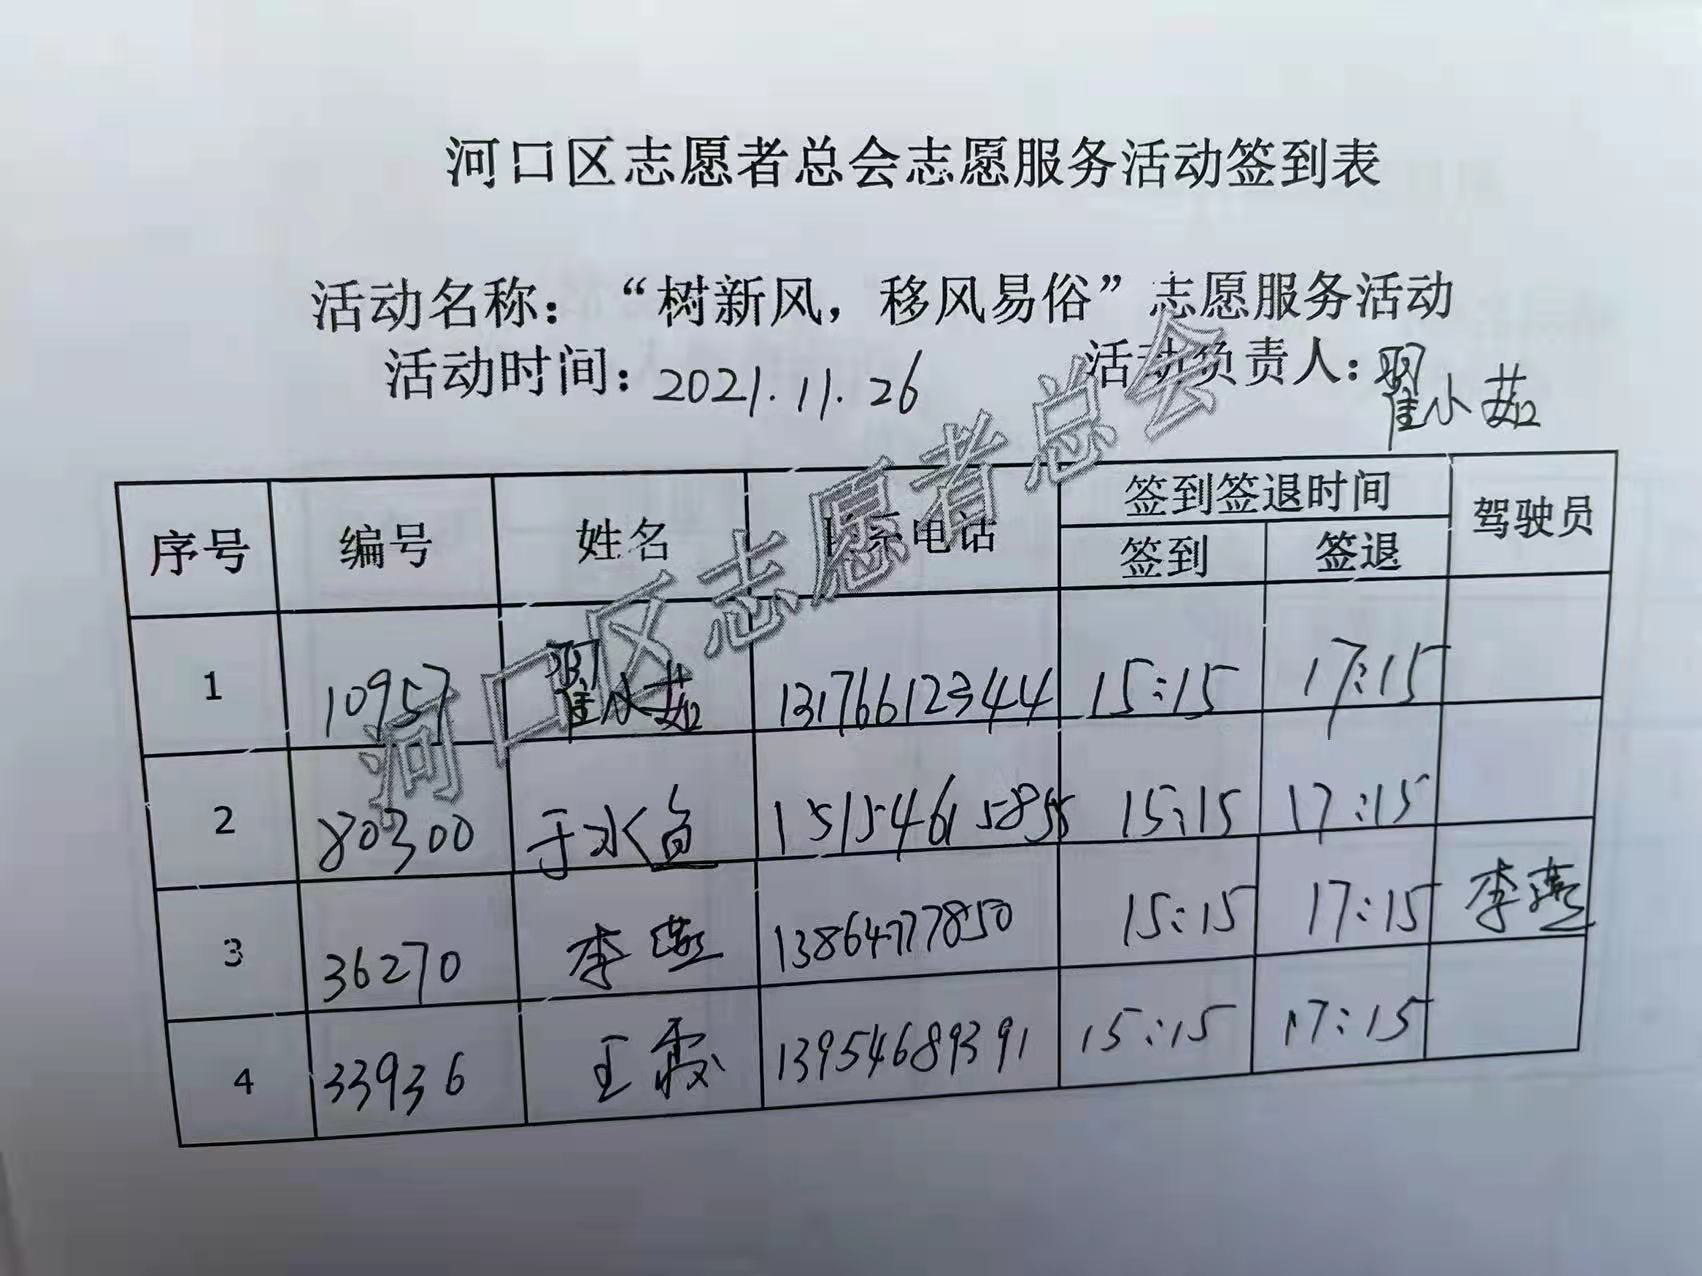 河口区志愿者总会志愿服务活动签到表
活动名称：“树新风，移风易俗”志愿服务活动
活动时间：2021.11.26 活动负责人：翟小茹
序号 编号 姓名 联系电话 签到签退时间 驾驶员
签到 签退
1 10957 翟小茹 13176612344 15:15 17:15
2 80300 于水 15154615855 15:15 17:15
3 36270 李燕 13864777850 15:15 17:15 李燕
4 33936 王霞 13954689391 15:15 17:15
河口区志愿者总会